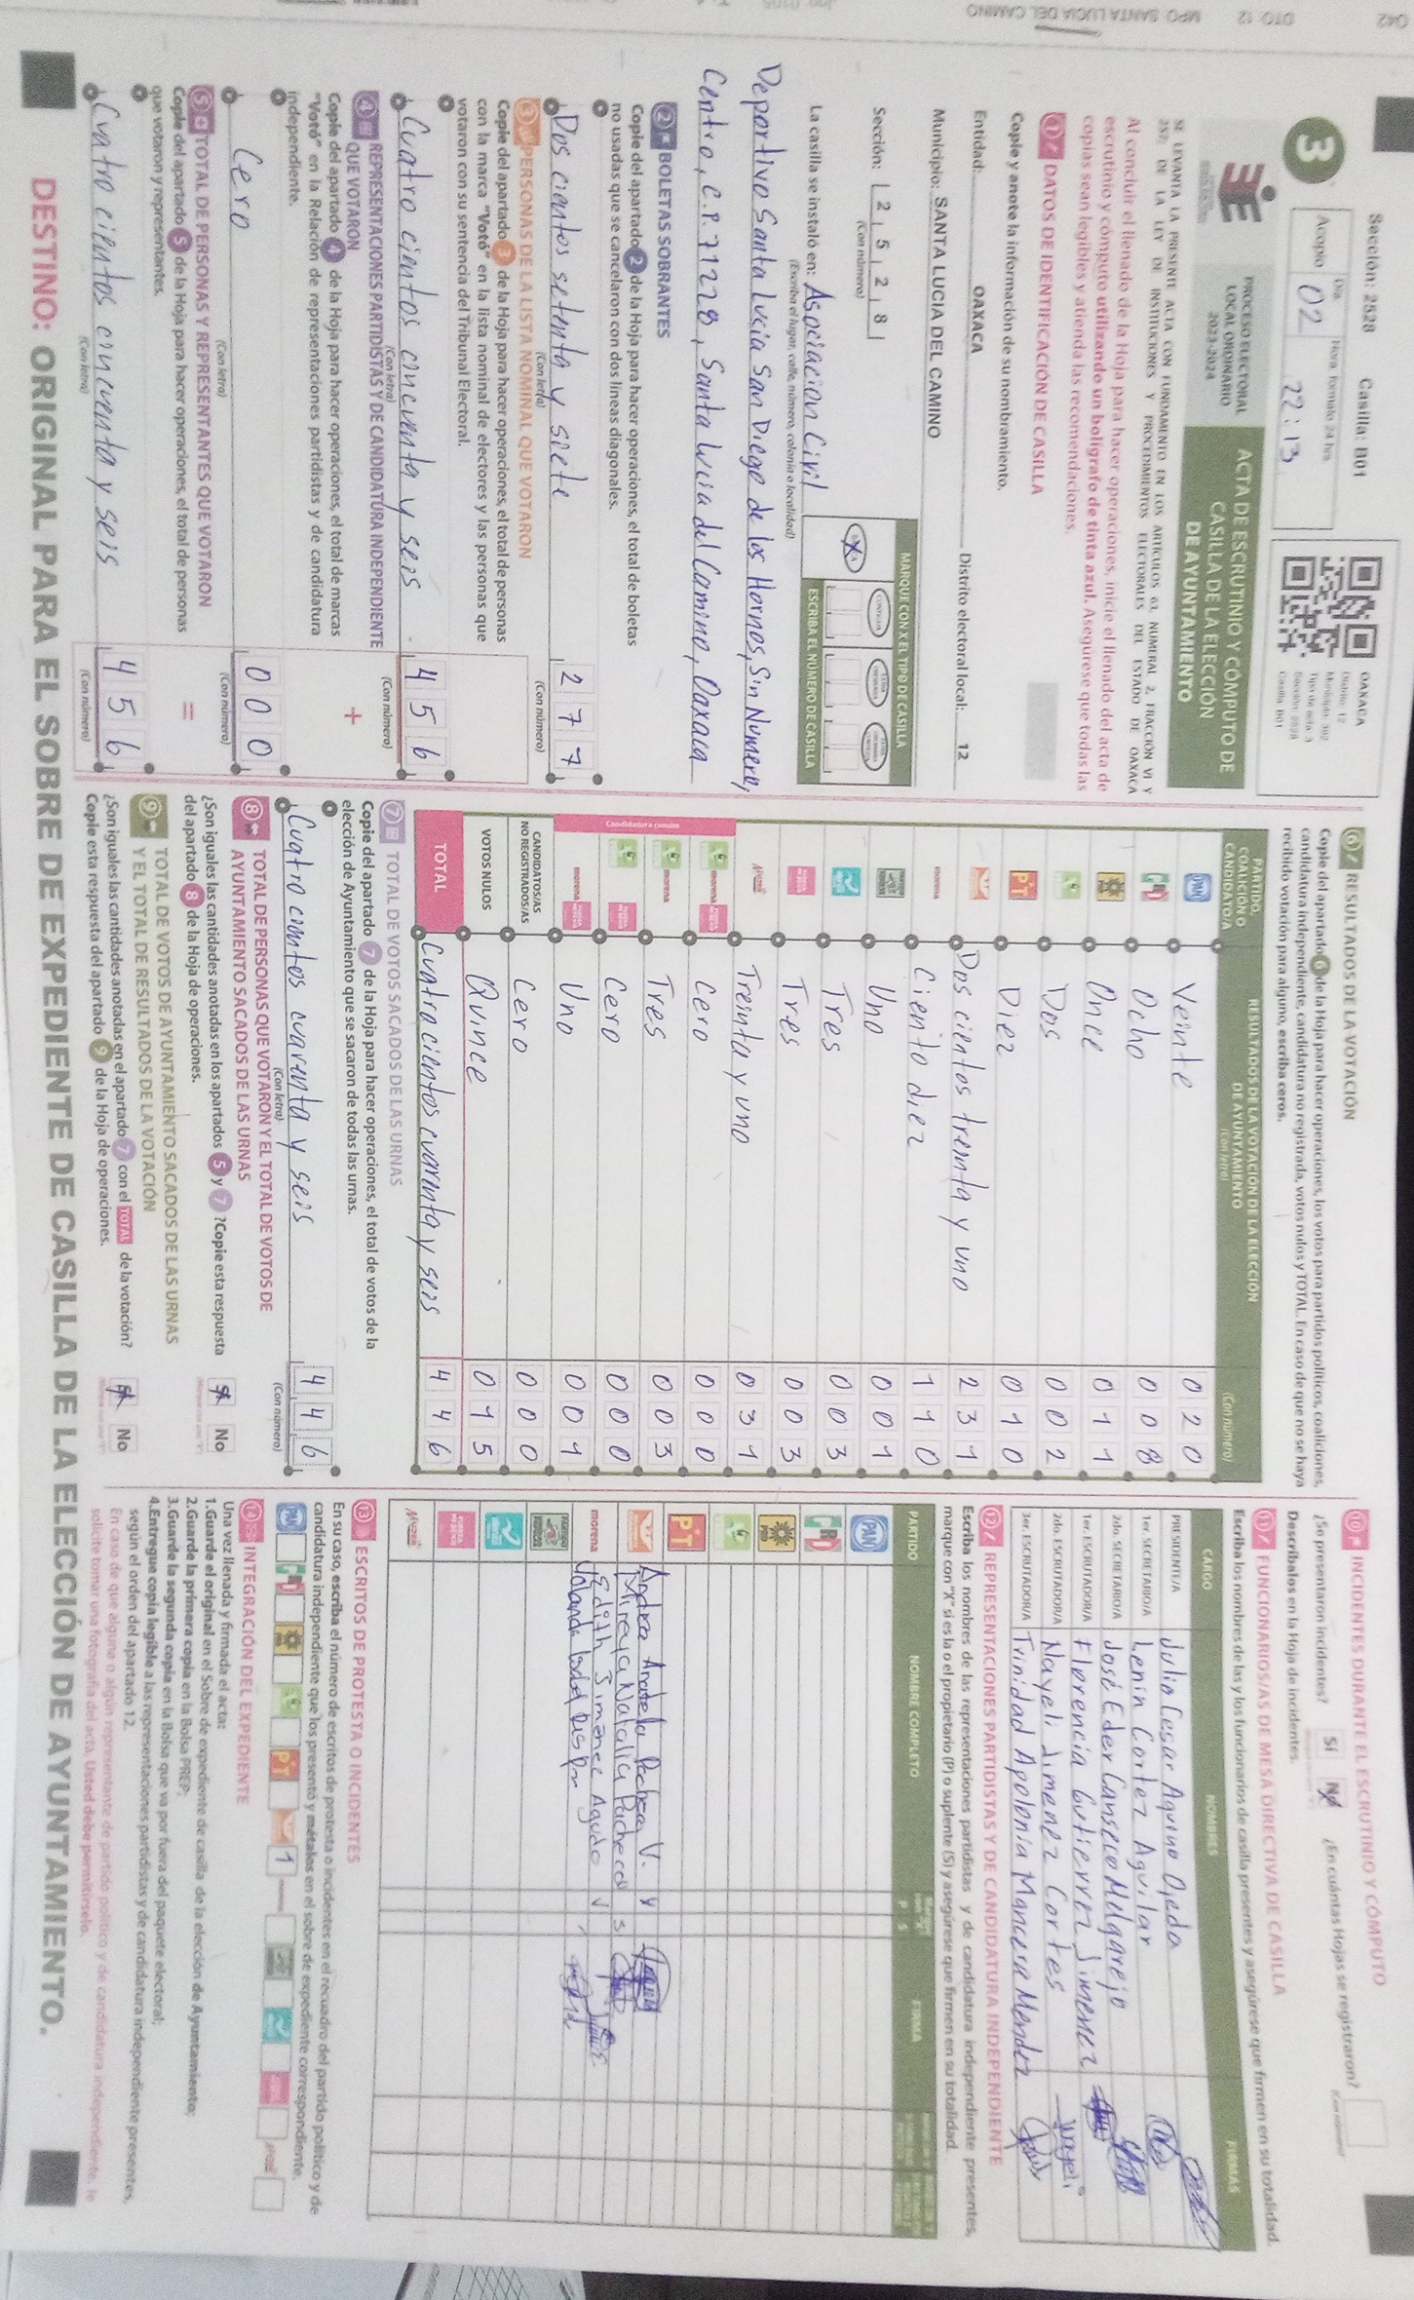 042 DTO 12 MPO SANTA LUCIA DEL CAMINO
Sección: 2528 Casilla: B01
3
Acopio
Día
02
Hora formato 24 hrs
22:13
OAXACA
Distrito: 12
Tipo de acta: 3
Sección: 2528
Casilla: B01
PROCESO ELECTORAL
LOCAL ORDINARIO
2023-2024
ACTA DE ESCRUTINIO Y CÓMPUTO DE
CASILLA DE LA ELECCIÓN
DE AYUNTAMIENTO
SE LEVANTA LA PRESENTE ACTA CON FUNDAMENTO EN LOS ARTÍCULOS 63, NUMERAL 2, FRACCIÓN VI Y
252; DE LA LEY DE INSTITUCIONES Y PROCEDIMIENTOS ELECTORALES DEL ESTADO DE OAXACA
Al concluir el llenado de la Hoja para hacer operaciones, inicie el llenado del acta de
escrutinio y cómputo utilizando un bolígrafo de tinta azul. Asegúrese que todas las
copias sean legibles y atienda las recomendaciones.
1 DATOS DE IDENTIFICACIÓN DE CASILLA
Copie y anote la información de su nombramiento.
Entidad: OAXACA Distrito electoral local: 12
Municipio: SANTA LUCIA DEL CAMINO
Sección: 2 5 2 8
(Con número)
MARQUE CON X EL TIPO DE CASILLA
ESCRIBA EL NÚMERO DE CASILLA
La casilla se instaló en: Asociacion Civil
(Escriba el lugar, calle, número, colonia o localidad)
Deportivo Santa Lucia San Diego de los Hornos, Sin Numero,
Centro, C.P. 71228, Santa Lucia del Camino, Oaxaca
2 BOLETAS SOBRANTES
Copie del apartado 2 de la Hoja para hacer operaciones, el total de boletas
no usadas que se cancelaron con dos líneas diagonales.
Dos cientos setenta y siete 2 7 7
(Con letra) (Con número)
3 PERSONAS DE LA LISTA NOMINAL QUE VOTARON
Copie del apartado 3 de la Hoja para hacer operaciones, el total de personas
con la marca "Votó" en la lista nominal de electores y las personas que
votaron con su sentencia del Tribunal Electoral.
Cuatro cientos cincuenta y seis 4 5 6
(Con letra) (Con número)
4 REPRESENTACIONES PARTIDISTAS Y DE CANDIDATURA INDEPENDIENTE
QUE VOTARON
Copie del apartado 4 de la Hoja para hacer operaciones, el total de marcas
"Votó" en la Relación de representaciones partidistas y de candidatura
independiente.
+
Cero 0 0 0
(Con letra) (Con número)
5 TOTAL DE PERSONAS Y REPRESENTANTES QUE VOTARON
Copie del apartado 5 de la Hoja para hacer operaciones, el total de personas
que votaron y representantes.
=
Cuatro cientos cincuenta y seis 4 5 6
(Con letra) (Con número)
6 RESULTADOS DE LA VOTACIÓN
Copie del apartado 6 de la Hoja para hacer operaciones, los votos para partidos políticos, coaliciones,
candidatura independiente, candidatura no registrada, votos nulos y TOTAL. En caso de que no se haya
recibido votación para alguno, escriba ceros.
PARTIDO,
COALICIÓN O
CANDIDATO/A
RESULTADOS DE LA VOTACIÓN DE LA ELECCIÓN
DE AYUNTAMIENTO
(Con letra)
(Con número)
PAN Veinte 0 2 0
PRI Ocho 0 0 8
PRD Once 0 1 1
Dos 0 0 2
PT Diez 0 1 0
Dos cientos treinta y uno 2 3 1
morena Ciento diez 1 1 0
Uno 0 0 1
Tres 0 0 3
Tres 0 0 3
Treinta y uno 0 3 1
Candidatura común
morena Cero 0 0 0
morena Tres 0 0 3
Cero 0 0 0
morena Uno 0 0 1
CANDIDATOS/AS
NO REGISTRADOS/AS Cero 0 0 0
VOTOS NULOS Quince 0 1 5
TOTAL Cuatro cientos cuarenta y seis 4 4 6
7 TOTAL DE VOTOS SACADOS DE LAS URNAS
Copie del apartado 7 de la Hoja para hacer operaciones, el total de votos de la
elección de Ayuntamiento que se sacaron de todas las urnas.
Cuatro cientos cuarenta y seis 4 4 6
(Con letra) (Con número)
8 TOTAL DE PERSONAS QUE VOTARON Y EL TOTAL DE VOTOS DE
AYUNTAMIENTO SACADOS DE LAS URNAS
¿Son iguales las cantidades anotadas en los apartados 5 y 7 ?Copie esta respuesta
del apartado 8 de la Hoja de operaciones.
Sí No
9 TOTAL DE VOTOS DE AYUNTAMIENTO SACADOS DE LAS URNAS
Y EL TOTAL DE RESULTADOS DE LA VOTACIÓN
¿Son iguales las cantidades anotadas en el apartado 7 con el TOTAL de la votación?
Copie esta respuesta del apartado 9 de la Hoja de operaciones.
Sí No
10 INCIDENTES DURANTE EL ESCRUTINIO Y CÓMPUTO
¿Se presentaron incidentes? Sí No ¿En cuántas Hojas se registraron?
(Con número)
Descríbalos en la Hoja de incidentes.
11 FUNCIONARIOS/AS DE MESA DIRECTIVA DE CASILLA
Escriba los nombres de las y los funcionarios de casilla presentes y asegúrese que firmen en su totalidad.
CARGO NOMBRES FIRMAS
PRESIDENTE/A Julio Cesar Aquino Ojeda
1er. SECRETARIO/A Lenin Cortez Aguilar
2do. SECRETARIO/A José Eder Canseco Melgarejo
1er. ESCRUTADOR/A Florencia Gutierrez Jimenez
2do. ESCRUTADOR/A Nayeli Jimenez Cortes
3er. ESCRUTADOR/A Trinidad Apolonia Mancera Mendez
12 REPRESENTACIONES PARTIDISTAS Y DE CANDIDATURA INDEPENDIENTE
Escriba los nombres de las representaciones partidistas y de candidatura independiente presentes,
marque con "X" si es la o el propietario (P) o suplente (S) y asegúrese que firmen en su totalidad.
PARTIDO NOMBRE COMPLETO P S FIRMA
PAN
PRI
PRD
PT
Andrea Pacheco V.
Mireya Natalia Pacheco S
morena Edith Jimenez Agudo
Yolanda
13 ESCRITOS DE PROTESTA O INCIDENTES
En su caso, escriba el número de escritos de protesta o incidentes en el recuadro del partido político y de
candidatura independiente que los presentó y métalos en el sobre de expediente correspondiente.
PAN PRI PRD PT 1
14 INTEGRACIÓN DEL EXPEDIENTE
Una vez llenada y firmada el acta:
1.Guarde el original en el Sobre de expediente de casilla de la elección de Ayuntamiento;
2.Guarde la primera copia en la Bolsa PREP;
3.Guarde la segunda copia en la Bolsa que va por fuera del paquete electoral;
4.Entregue copia legible a las representaciones partidistas y de candidatura independiente presentes,
según el orden del apartado 12.
En caso de que alguna o algún representante de partido político y de candidatura independiente, le
solicite tomar una fotografía del acta. Usted debe permitírselo.
DESTINO: ORIGINAL PARA EL SOBRE DE EXPEDIENTE DE CASILLA DE LA ELECCIÓN DE AYUNTAMIENTO.